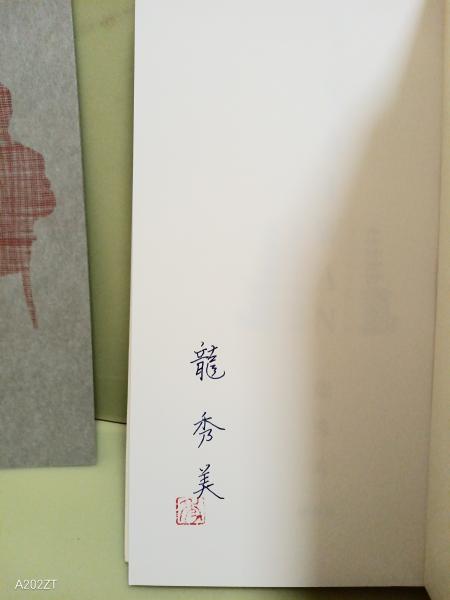 龍秀美
A202ZT